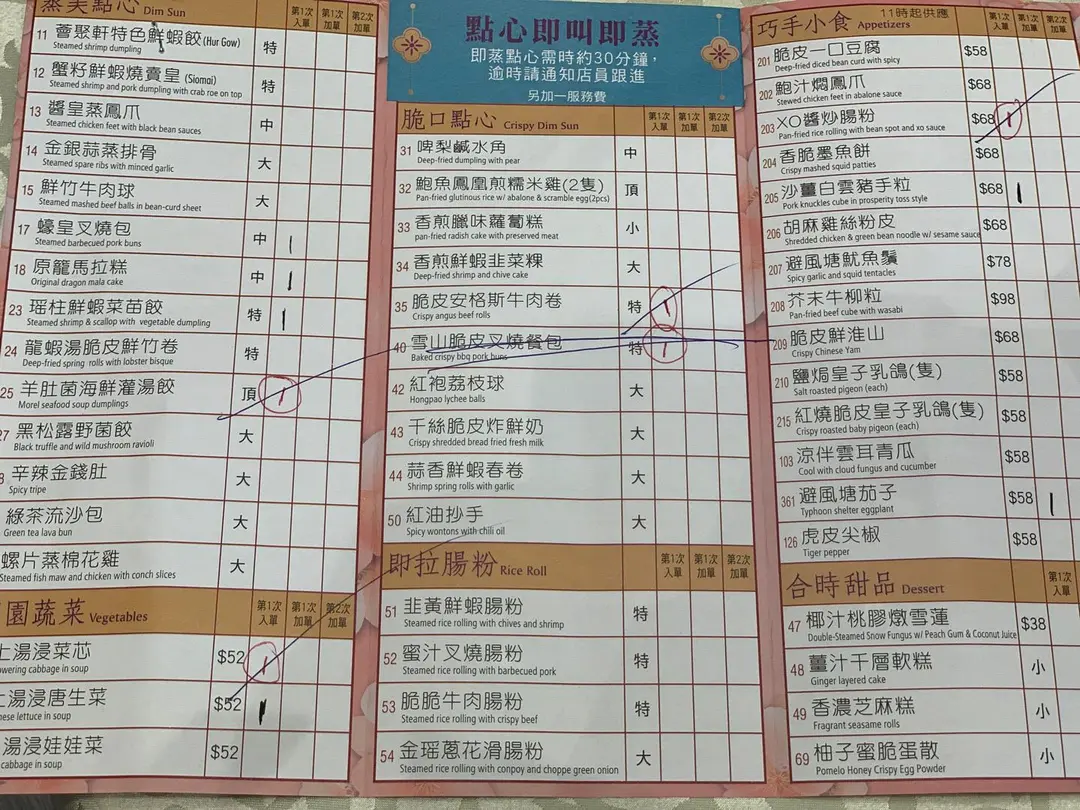 蒸美點心 Dim Sun 第1次入單 第1次加單 第2次加單
11 薈聚軒特色鮮蝦餃(Hur Gow) 特
Steamed shrimp dumpling
12 蟹籽鮮蝦燒賣皇 (Siomai) 特
Steamed shrimp and pork dumpling with crab roe on top
13 醬皇蒸鳳爪 中
Steamed chicken feet with black bean sauces
14 金銀蒜蒸排骨 大
Steamed spare ribs with minced garlic
15 鮮竹牛肉球 大
Steamed mashed beef balls in bean-curd sheet
17 蠔皇叉燒包 中 |
Steamed barbecued pork buns
18 原籠馬拉糕 中 |
Original dragon mala cake
23 瑶柱鮮蝦菜苗餃 特 |
Steamed shrimp & scallop with vegetable dumpling
24 龍蝦湯脆皮鮮竹卷 特
Deep-fried spring rolls with lobster bisque
25 羊肚菌海鮮灌湯餃 頂 1
Morel seafood soup dumplings
27 黑松露野菌餃 大
Black truffle and wild mushroom ravioli
辛辣金錢肚 大
Spicy tripe
綠茶流沙包 大
Green tea lava bun
螺片蒸棉花雞 大
Steamed fish maw and chicken with conch slices
園蔬菜 Vegetables 第1次入單 第1次加單 第2次加單
上湯浸菜芯 $52 1
owering cabbage in soup
上湯浸唐生菜 $52 |
nese lettuce in soup
湯浸娃娃菜 $52
cabbage in soup
點心即叫即蒸
即蒸點心需時約30分鐘，
逾時請通知店員跟進
另加一服務費
脆口點心 Crispy Dim Sun 第1次入單 第1次加單 第2次加單
31 啤梨鹹水角 中
Deep-fried dumpling with pear
32 鮑魚鳳凰煎糯米雞(2隻) 頂
Pan-fried glutinous rice w/ abalone & scramble egg(2pcs)
33 香煎臘味蘿蔔糕 小
pan-fried radish cake with preserved meat
34 香煎鮮蝦韭菜粿 大
Deep-fried shrimp and chive cake
35 脆皮安格斯牛肉卷 特 1
Crispy angus beef rolls
40 雪山脆皮叉燒餐包 特 1
Baked crispy bbq pork buns
42 紅袍荔枝球 大
Hongpao lychee balls
43 千絲脆皮炸鮮奶 大
Crispy shredded bread fried fresh milk
44 蒜香鮮蝦春卷 大
Shrimp spring rolls with garlic
50 紅油抄手 大
Spicy wontons with chili oil
即拉腸粉 Rice Roll 第1次入單 第1次加單 第2次加單
51 韮黃鮮蝦腸粉 特
Steamed rice rolling with chives and shrimp
52 蜜汁叉燒腸粉 特
Steamed rice rolling with barbecued pork
53 脆脆牛肉腸粉 特
Steamed rice rolling with crispy beef
54 金瑶蔥花滑腸粉 大
Steamed rice rolling with conpoy and choppe green onion
巧手小食 11時起供應 Appetizers 第1次入單 第1次加單 第2次加單
201 脆皮一口豆腐 $58
Deep-fried diced bean curd with spicy
202 鮑汁燜鳳爪 $68
Stewed chicken feet in abalone sauce
203 XO醬炒腸粉 $68 1
Pan-fried rice rolling with bean spot and xo sauce
204 香脆墨魚餅 $68
Crispy mashed squid patties
205 沙薑白雲豬手粒 $68 |
Pork knuckles cube in prosperity toss style
206 胡麻雞絲粉皮 $68
Shredded chicken & green bean noodle w/ sesame sauce
207 避風塘魷魚鬚 $78
Spicy garlic and squid tentacles
208 芥末牛柳粒 $98
Pan-fried beef cube with wasabi
209 脆皮鮮淮山 $68
Crispy Chinese Yam
210 鹽焗皇子乳鴿(隻) $58
Salt roasted pigeon (each)
215 紅燒脆皮皇子乳鴿(隻) $58
Crispy roasted baby pigeon (each)
103 涼伴雲耳青瓜 $58
Cool with cloud fungus and cucumber
361 避風塘茄子 $58 |
Typhoon shelter eggplant
126 虎皮尖椒 $58
Tiger pepper
合時甜品 Dessert 第1次入單
47 椰汁桃膠燉雪蓮 $38
Double-Steamed Snow Fungus w/ Peach Gum & Coconut Juice
48 薑汁千層軟糕 小
Ginger layered cake
49 香濃芝麻糕 小
Fragrant seasame rolls
69 柚子蜜脆蛋散 小
Pomelo Honey Crispy Egg Powder